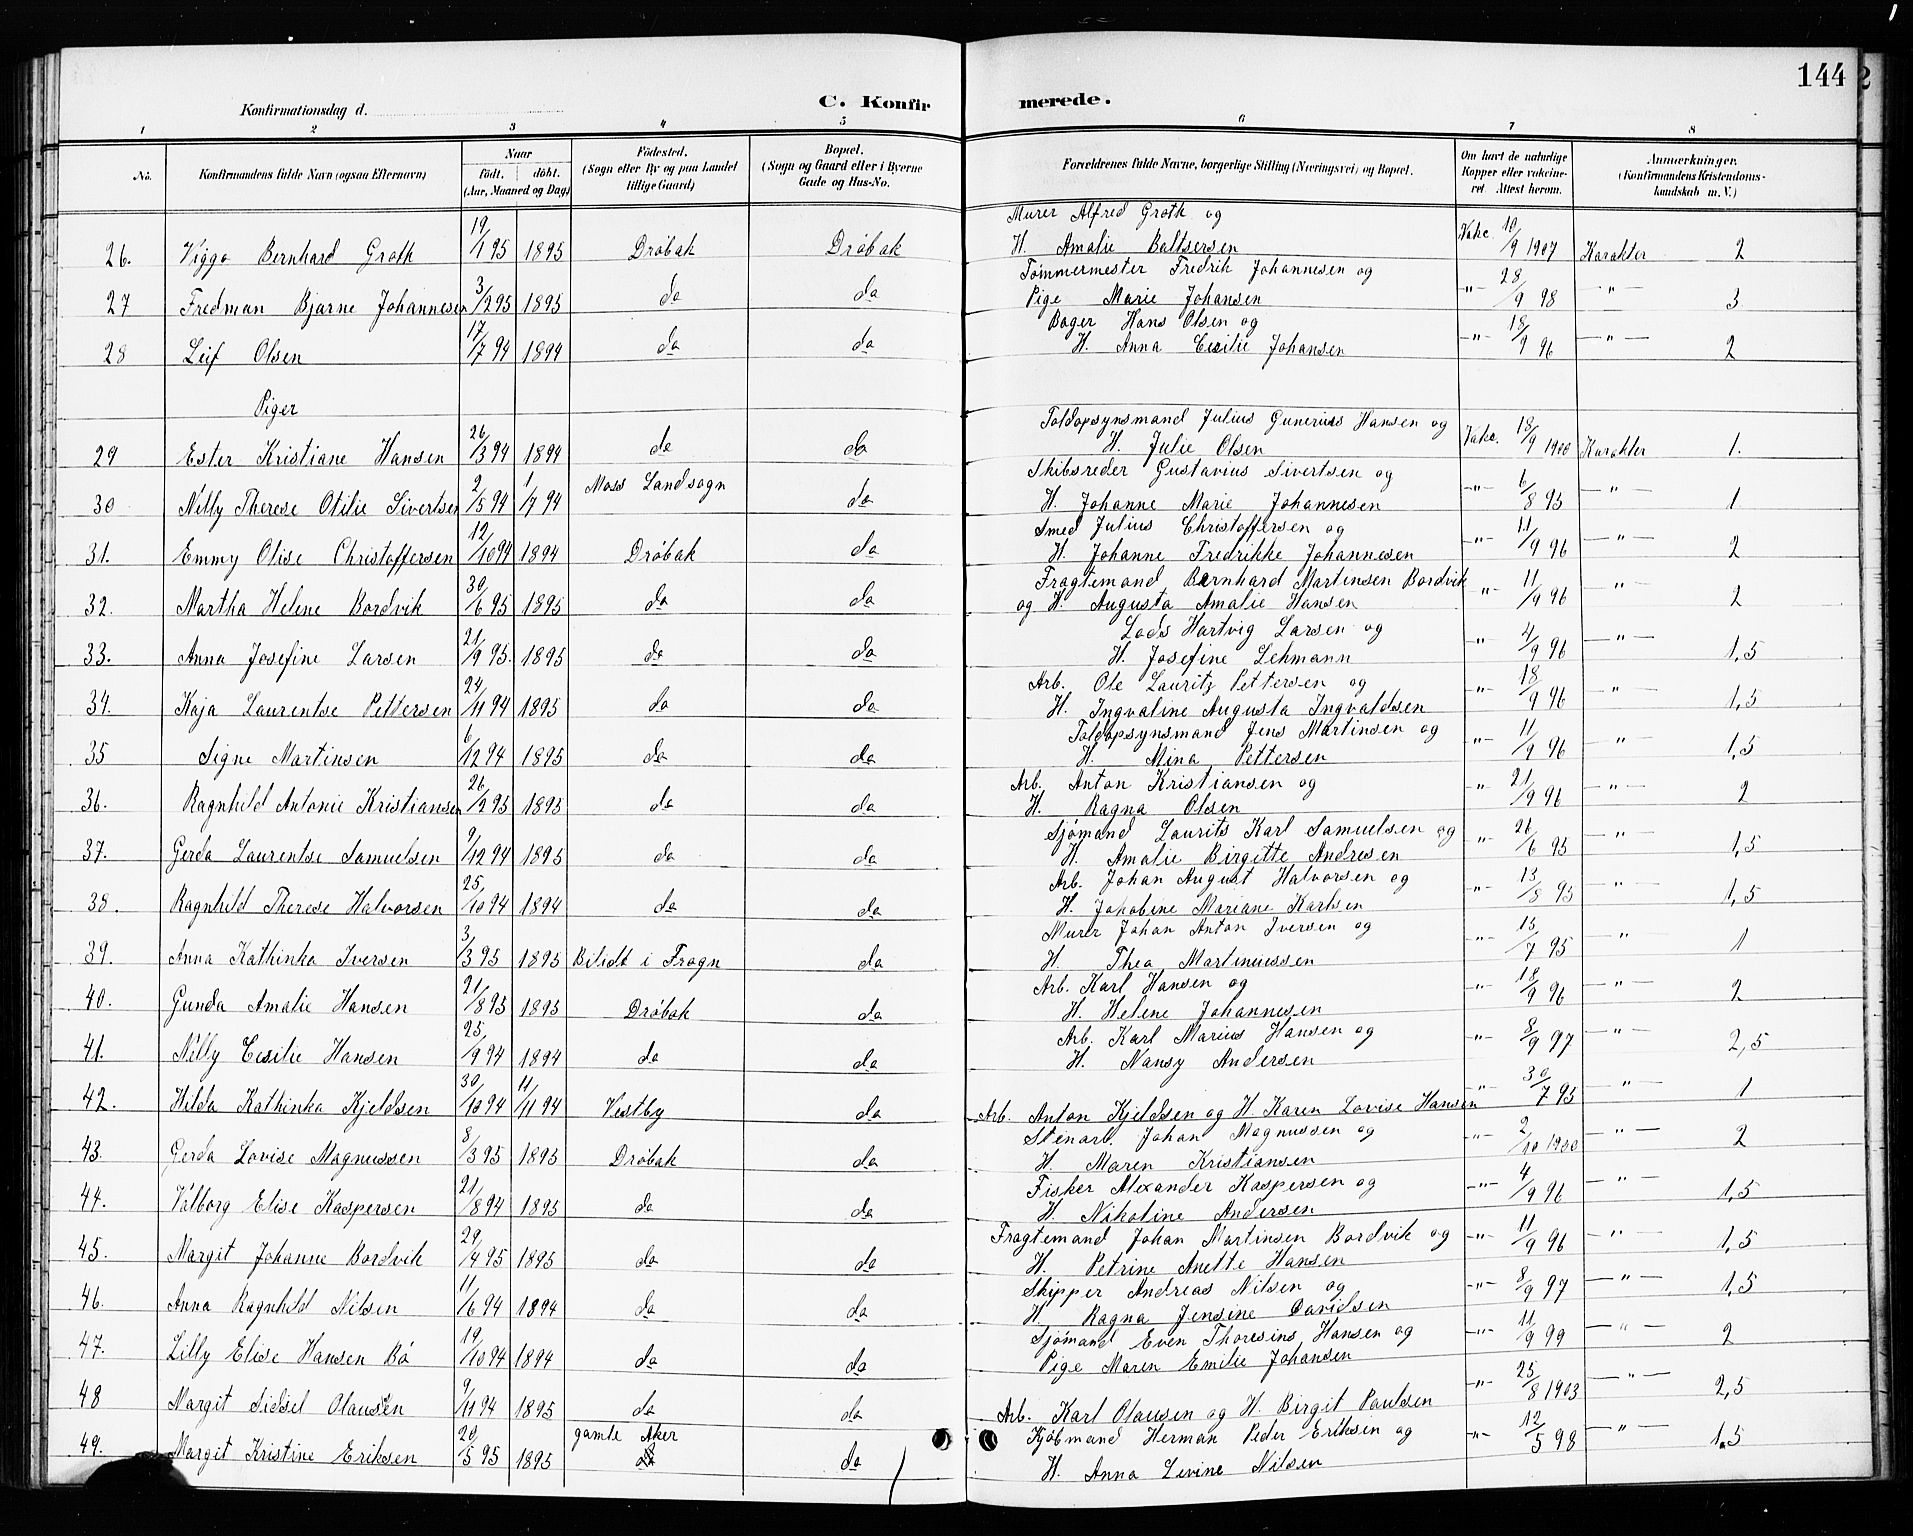 144
Konfirmationsdag d.
C. Konfirmerede.
1 2 3 4 5 6 7 8
No. Konfirmandens fulde Navn (ogsaa Efternavn) Naar født. døbt. (Aar, Maaned og Dag) Fødested. (Sogn eller By og paa Landet tillige Gaard) Bopæl. (Sogn og Gaard eller i Byerne Gade og Hus-No. Forældrenes fulde Navne, borgerlige Stilling (Næringsvei) og Bopæl. Om havt de naturlige Kopper eller vakcineret. Attest herom. Anmerkninger. (Konfirmandens Kristendomskundskab m. V.)
26. Viggo Bernhard Groth 19/1 95 1895 Drøbak Drøbak Murer Alfred Groth og H. Amalie Baltsersen Vakc. 10/9 1907 Karakter 2
27 Fredman Bjarne Johannesen 3/2 95 1895 do do Tømmermester Fredrik Johannesen og Pige Marie Johansen -"- 28/9 98 -"- 3
28 Leif Olsen 17/7 94 1894 do do Bager Hans Olsen og H. Anna Cecilie Johansen -"- 18/9 96 -"- 2
Piger
29 Ester Kristiane Hansen 26/3 94 1894 do do Toldopsynsmand Julius Gunerius Hansen og H. Julie Olsen Vakc. 18/9 1900 Karakter 1.
30 Nilly Therese Otilie Sivertsen 2/5 94 1/7 94 Moss Landsogn do Skibsreder Gustavius Sivertsen og H. Johanne Marie Johannesen -"- 6/8 95 -"- 1
31. Emmy Olise Christoffersen 12/10 94 1894 Drøbak do Smed Julius Christoffersen og H. Johanne Fredrikke Johannesen -"- 11/9 96 -"- 2
32. Martha Helene Bordvik 30/6 95 1895 do do Fragtemand Bernhard Martinsen Bordvik og H. Augusta Amalie Hansen -"- 11/9 96 " 2
33. Anna Josefine Larsen 21/9 95. 1895 do do Lods Hartvig Larsen og H. Josefine Lehmann -"- 4/9 96 -"- 1,5
34. Kaja Laurentse Pettersen 24/11 94 1895 do do Arb. Ole Lauritz Pettersen og H. Ingvaline Augusta Ingvaldsen -"- 18/9 96 -"- 1,5
35 Signe Martinsen 6/12 94 1895 do do Toldopsynsmand Jens Martinsen og H. Mina Pettersen -"- 11/9 96 -"- 1,5
36. Ragnhild Antonie Kristiansen 26/2 95 1895 do do Arb. Anton Kristiansen og H. Ragna Olsen -"- 21/9 96 -"- 2
37. Gerda Laurentse Samuelsen 9/12 94 1895 do do Sjømand Laurits Karl Samuelsen og H. Amalie Birgitte Andresen -"- 26/6 95 -"- 1,5
38. Ragnhild Therese Halvorsen 25/10 94 1894 do do Arb. Johan August Halvorsen og H. Jakobine Mariane Karlsen -"- 13/8 95 -"- 1,5
39. Anna Kathinka Iversen 3/3 95 1895 Bilidt i Frogn do Murer Johan Anton Iversen og H. Thea Martinussen -"- 15/7 95 " 1
40. Gunda Amalie Hansen 21/8 95 1895 Drøbak do Arb. Karl Hansen og H. Helene Johannesen -"- 18/9 96 -"- 2
41. Nilly Cesilie Hansen 25/9 94 1894 do do Arb. Karl Marius Hansen og H. Nansy Andersen -"- 8/9 97 -"- 2,5
42. Hilda Kathinka Kjeldsen 30/10 94 11/11 94 Vestby do Arb. Anton Kjeldsen og H. Karen Lovise Hansen -"- 30/7 95 -"- 1
43. Gerda Lovise Magnussen 8/3 95 1895 Drøbak do Stenarb. Johan Magnussen og H. Maren Kristiansen -"- 2/10 1900 -"- 2
44. Valborg Elise Kaspersen 21/8 94 1895 do do Fisker Alexander Kaspersen og H. Nikoline Andersen -"- 4/9 96 -"- 1,5
45. Margit Johanne Bordvik 29/4 95 1895 do do Fragtemand Johan Martinsen Bordvik og H. Petrine Anette Hansen -"- 11/9 96 -"- 1,5
46. Anna Ragnhild Nilsen 11/6 94 1894 do do Skipper Andreas Nilsen og H. Ragna Jensine Davidsen -"- 8/9 97 -"- 1,5
47. Lilly Elise Hansen Bö 19/10 94 1894 do do Sjømand Even Thoresins Hansen og Pige Maren Emilie Johansen -"- 11/9 99 -"- 2
48 Margit Sidsel Olausen 9/11 94 1895 do do Arb. Karl Olausen og H. Birgit Paulsen -"- 25/8 1903 -"- 2,5
49. Margit Kristine Eriksen 20/5 95 1895 gamle Aker do Kjøbmand Herman Peder Eriksen og H. Anna Levine Nilsen -"- 12/5 98 -"- 1,5